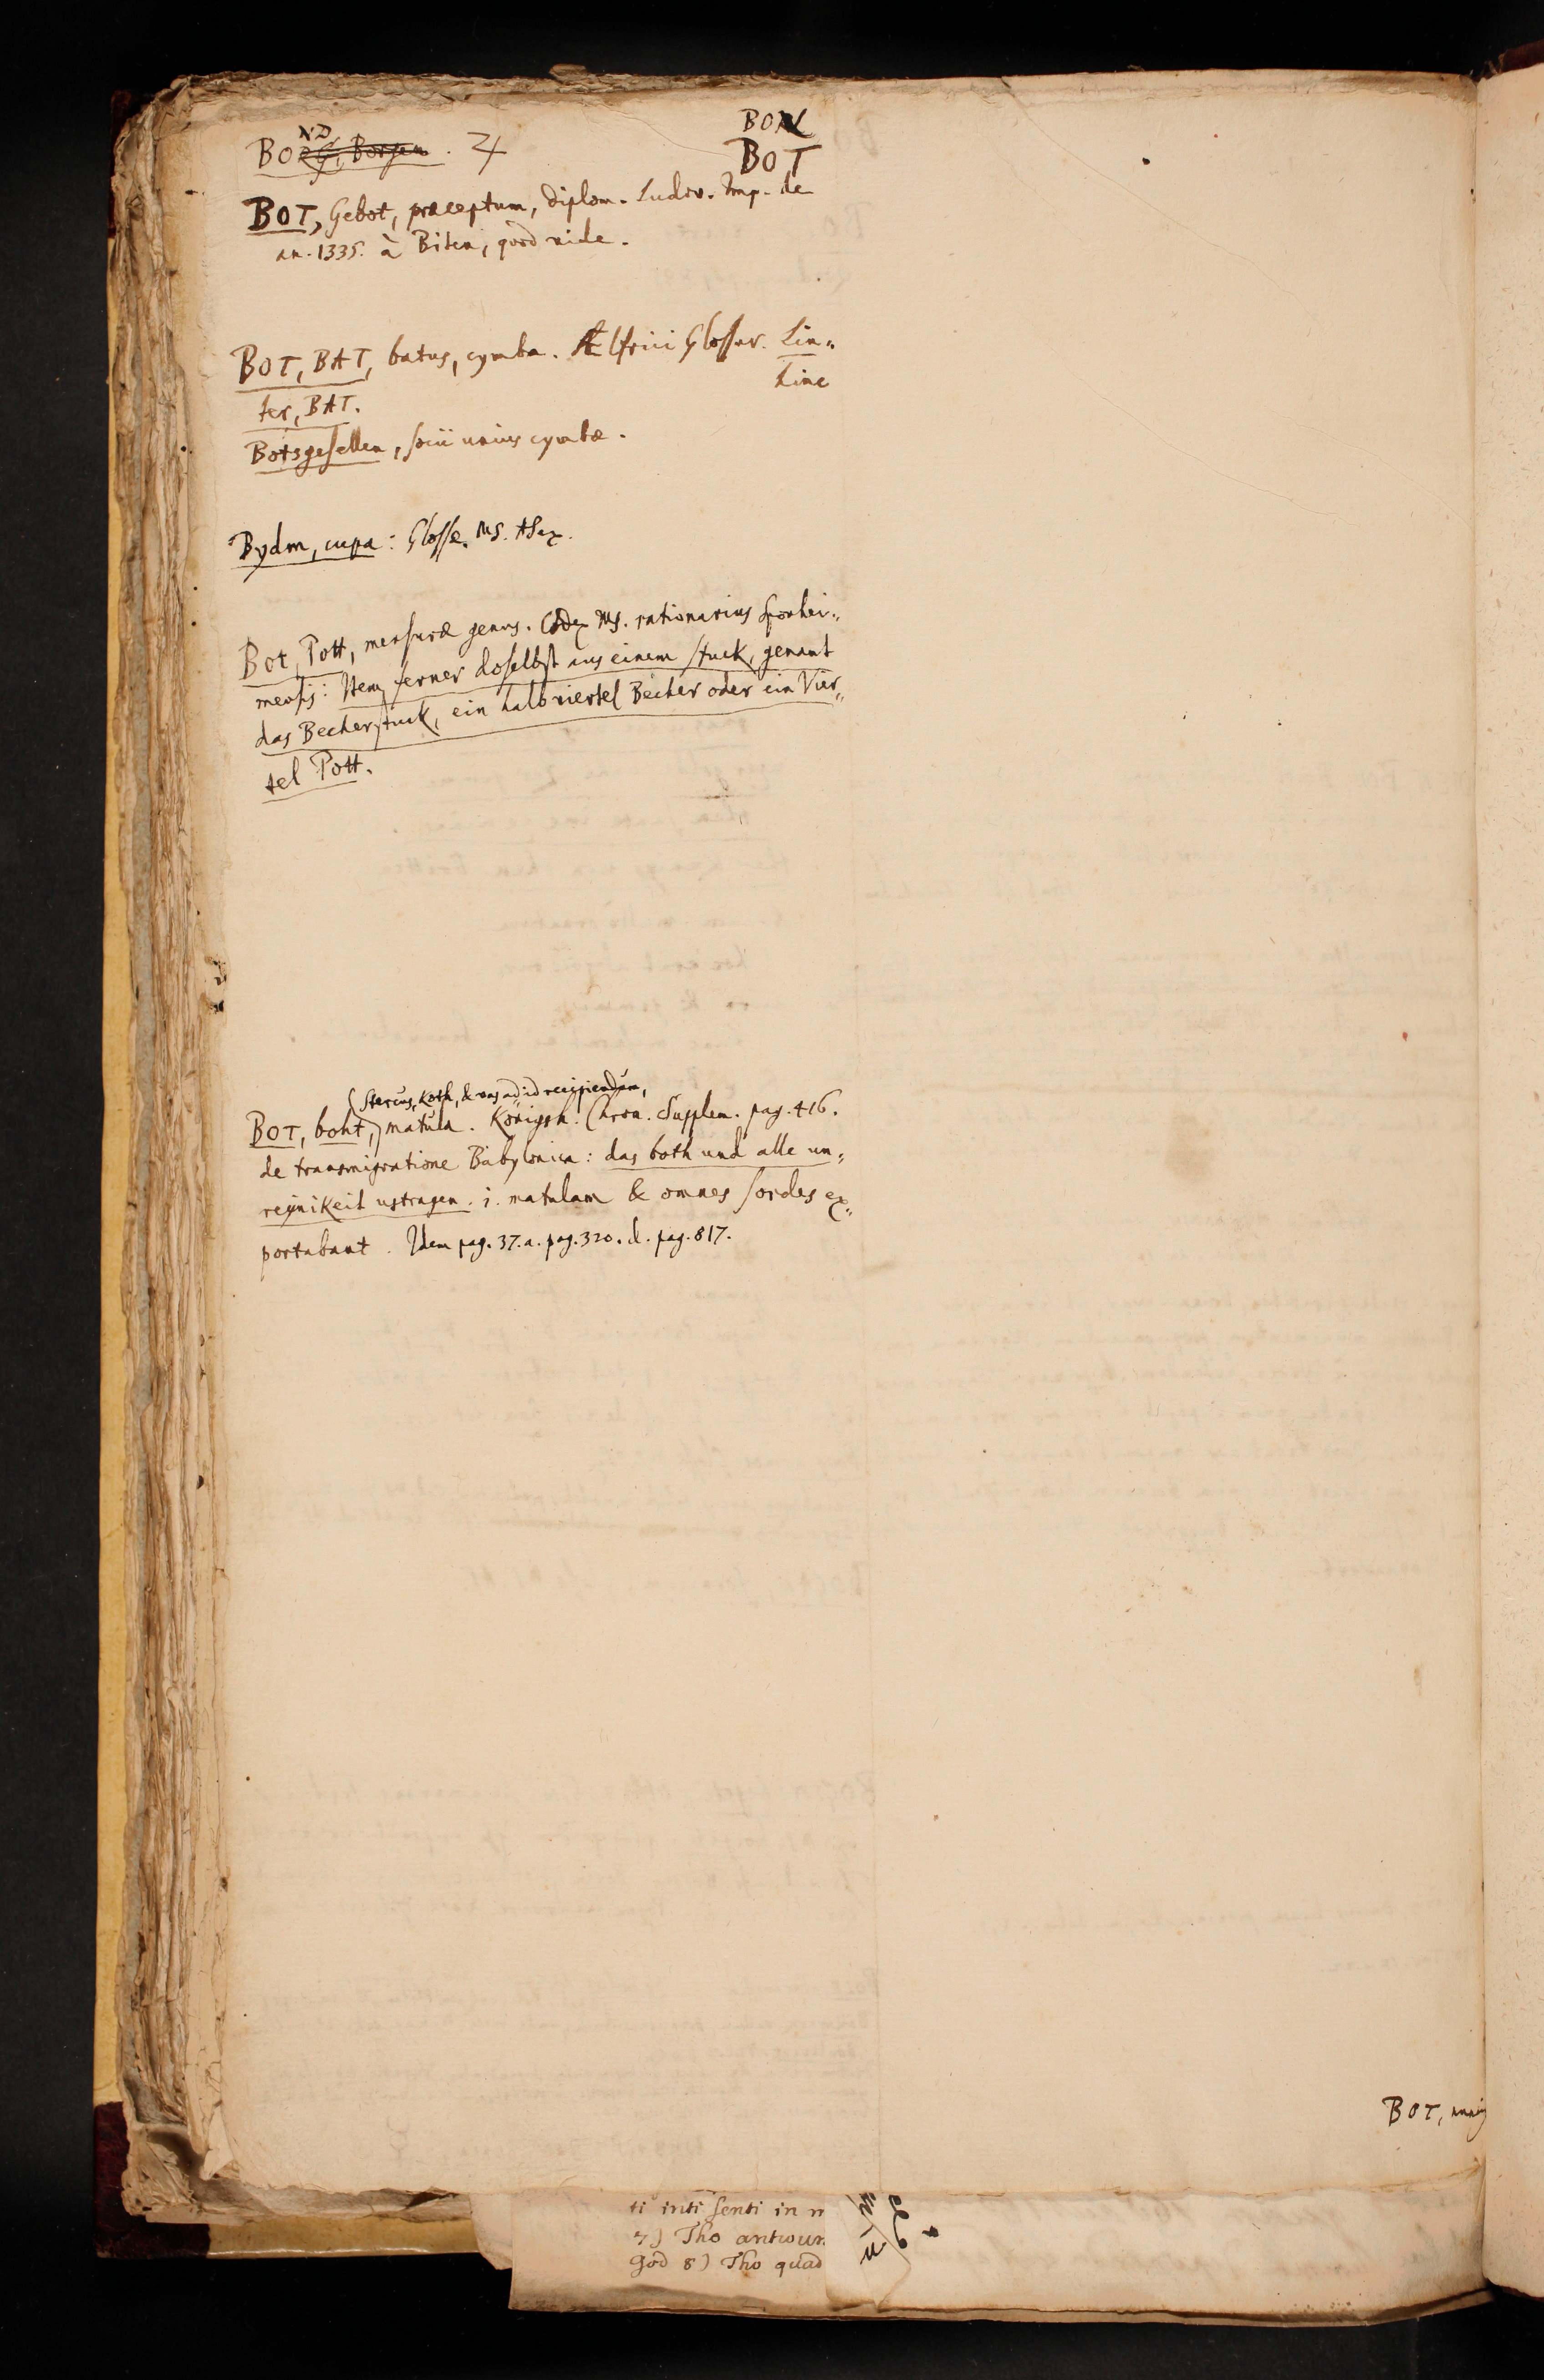 BON
BOT
BOND
BOT, Gebot, præceptum, diplom. Ludov. Imp. de
an. 1335. à Biten, quod vide.
BOT, BAT, batus, cymba. Ælfrici Glossar. Lin„
Line
ter, BAT.
Botsgesellen, socii unius cymbæ.
Bydm, cupa: Glossæ MS. ASax.
Bot, Pott, mensuræ genus. Codex MS. rationarius Sponhei„
mensis: Item ferner doselbst aus einem stuck, genant
das Becherstuck, ein halb viertel Becher oder ein Vier„
tel Pott.
(Stercus, Koth, & vas ad id recipiendum,
BOT, boht,) matula. Königsh. Chron. Supplem. pag. 416.
de transmigratione Babylonica: das both und alle un„
reinikeit ustragen. i. matulam & omnes sordes ex„
portabant. Idem pag. 37. a. pag. 320. d. pag. 817.
BOT,
ti inti senti in
7) Tho antwur
God 8) Tho quad